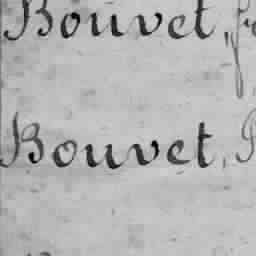 Bouvet,
Bouvet,